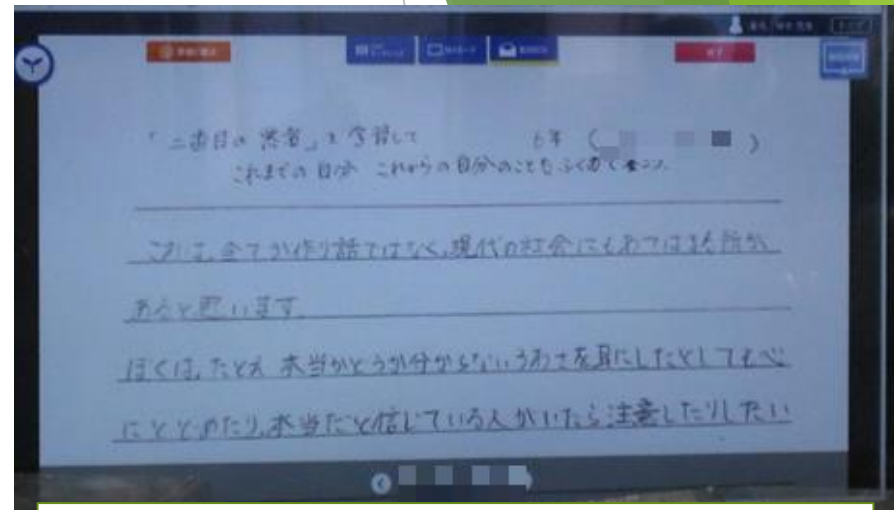 「二番目の悪者」を学習して 6年 ( )
これまでの自分 これからの自分のこともふくめて
これは、全てが作り話ではなく、現代の社会にもあてはまる所が
あると思います。
ぼくは、たとえ 本当かどうか分からないうわさを耳にしたとしても心
にとどめたり、本当だと信じている人がいたら注意したりしたい